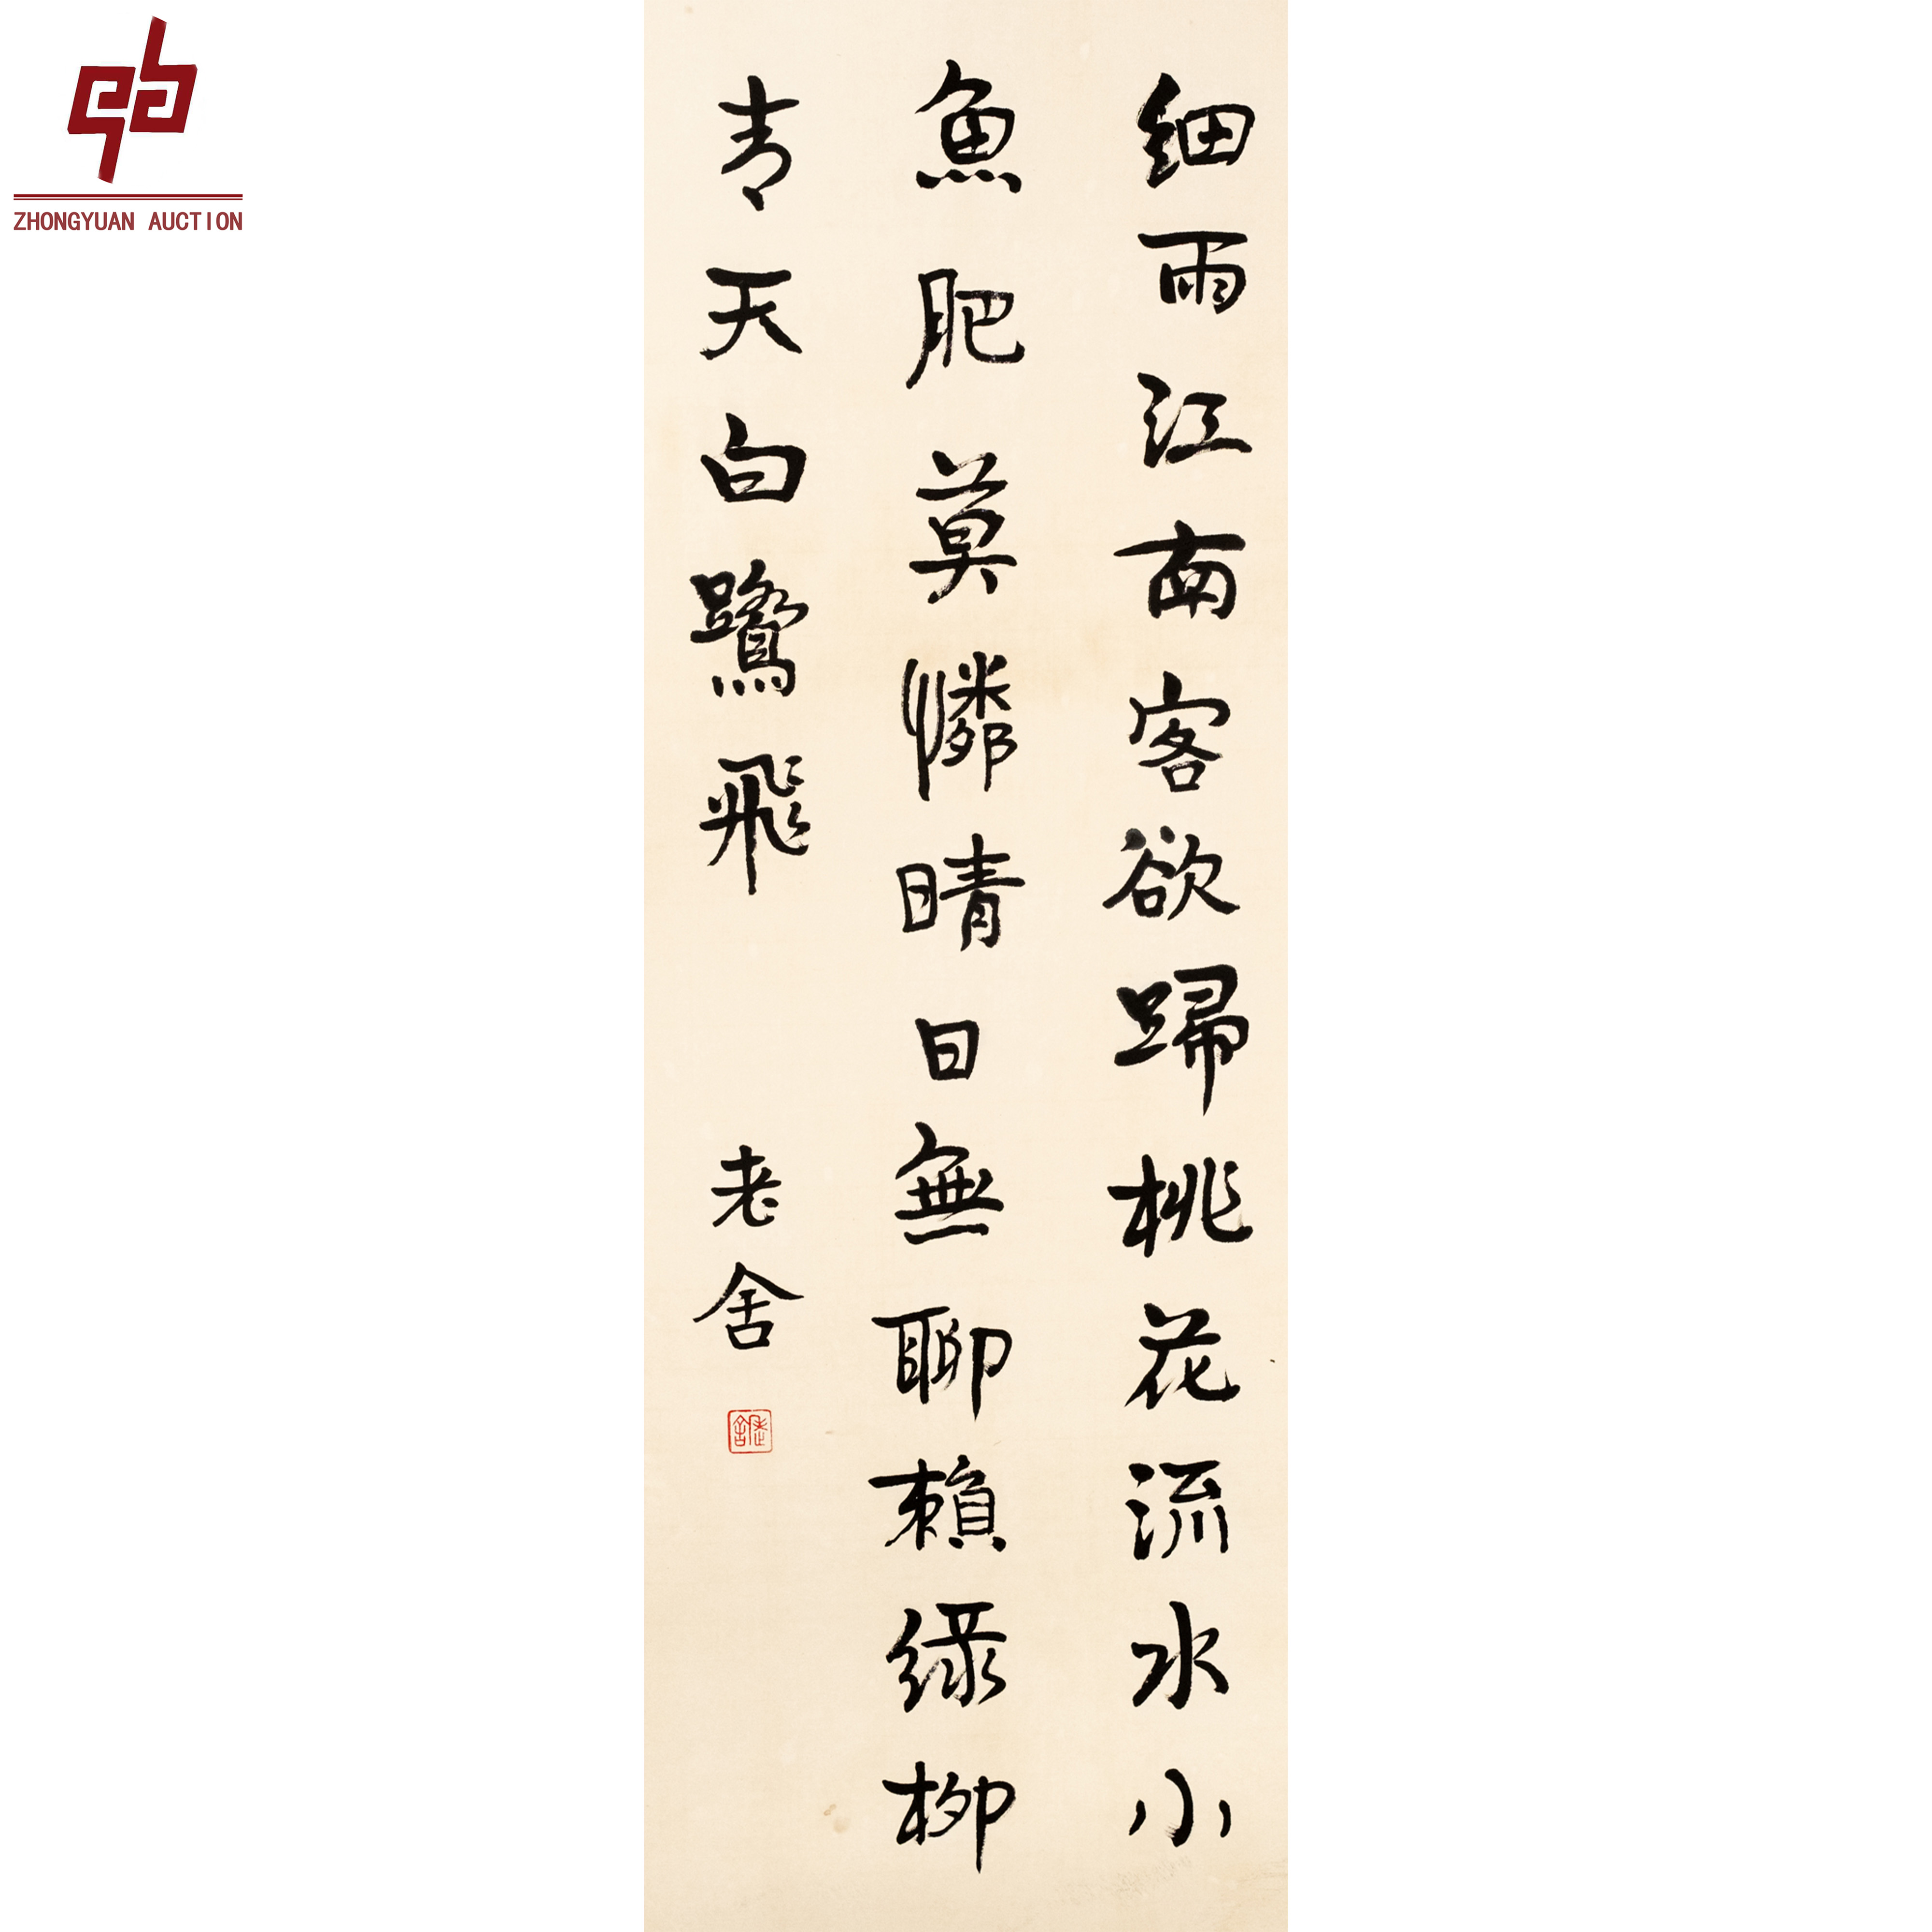 ZHONGYUAN AUCTION
細雨江南客欲歸桃花流水小
魚肥莫憐晴日無聊賴緑柳
青天白鷺飛
老舍
老舍